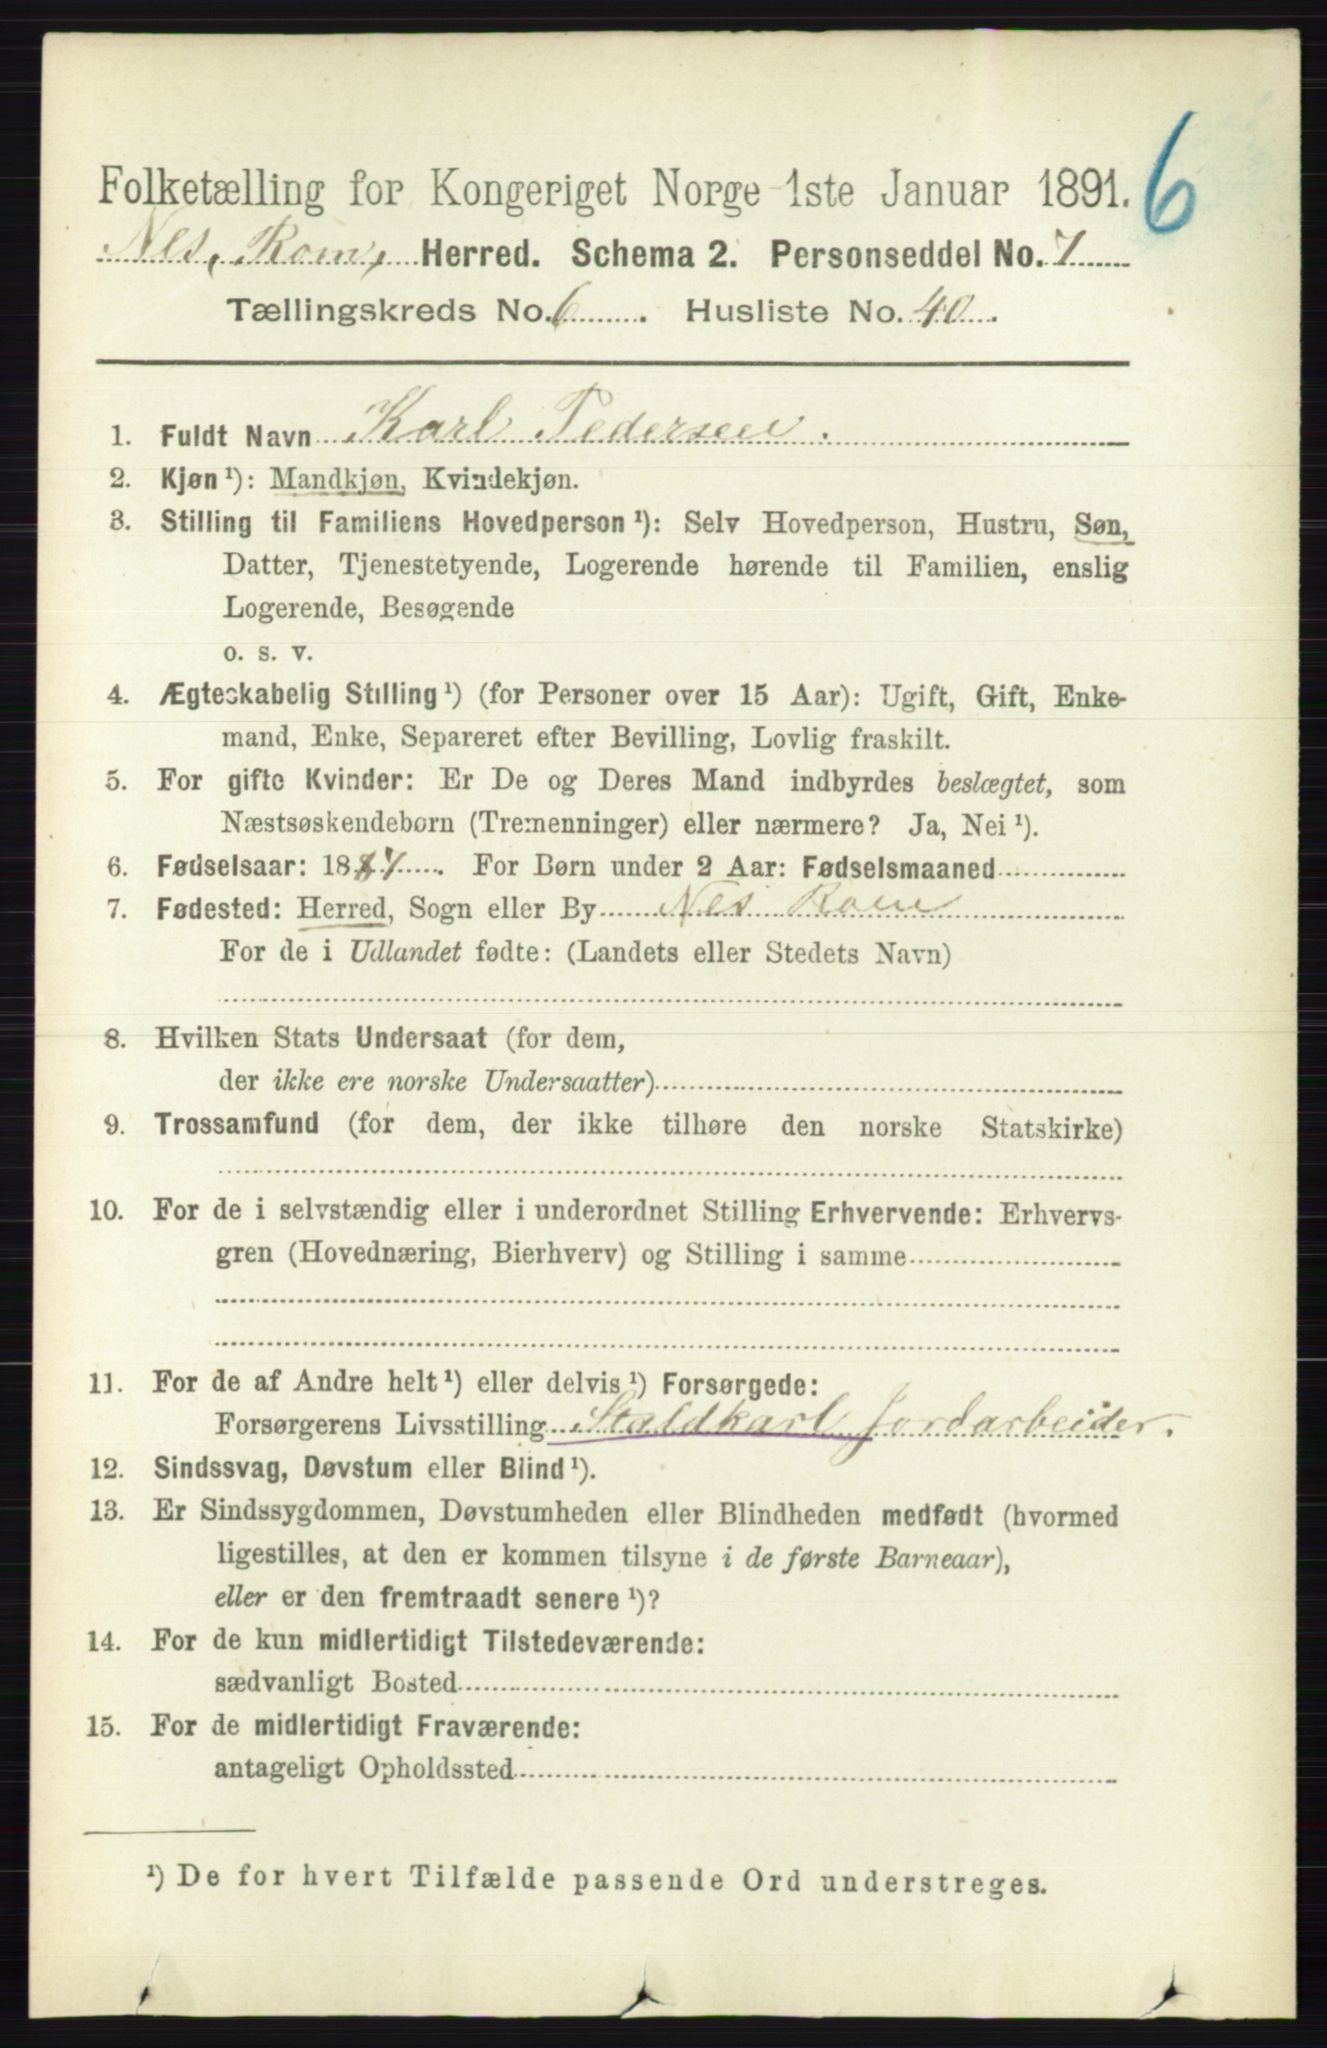 6
Folketælling for Kongeriget Norge 1ste Januar 1891.
Nes, Rom, Herred. Schema 2. Personseddel No. 7
Tællingskreds No. 6. Husliste No. 40.
1. Fuldt Navn Karl Pedersen.
2. Kjøn ¹): Mandkjøn, Kvindekjøn.
3. Stilling til Familiens Hovedperson ¹): Selv Hovedperson, Hustru, Søn,
Datter, Tjenestetyende, Logerende hørende til Familien, enslig
Logerende, Besøgende
o. s. v.
4. Ægteskabelig Stilling ¹) (for Personer over 15 Aar): Ugift, Gift, Enke-
mand, Enke, Separeret efter Bevilling, Lovlig fraskilt.
5. For gifte Kvinder: Er De og Deres Mand indbyrdes beslægtet, som
Næstsøskendebørn (Tremenninger) eller nærmere? Ja, Nei ¹).
6. Fødselsaar: 1887. For Børn under 2 Aar: Fødselsmaaned
7. Fødested: Herred, Sogn eller By Nes Rom
For de i Udlandet fødte: (Landets eller Stedets Navn)
8. Hvilken Stats Undersaat (for dem,
der ikke ere norske Undersaatter)
9. Trossamfund (for dem, der ikke tilhøre den norske Statskirke)
10. For de i selvstændig eller i underordnet Stilling Erhvervende: Erhvervs-
gren (Hovednæring, Bierhverv) og Stilling i samme
11. For de af Andre helt ¹) eller delvis ¹) Forsørgede:
Forsørgerens Livsstilling Staldkarl Jordarbeider.
12. Sindssvag, Døvstum eller Blind ¹).
13. Er Sindssygdommen, Døvstumheden eller Blindheden medfødt (hvormed
ligestilles, at den er kommen tilsyne i de første Barneaar),
eller er den fremtraadt senere ¹)?
14. For de kun midlertidigt Tilstedeværende:
sædvanligt Bosted
15. For de midlertidigt Fraværende:
antageligt Opholdssted
¹) De for hvert Tilfælde passende Ord understreges.